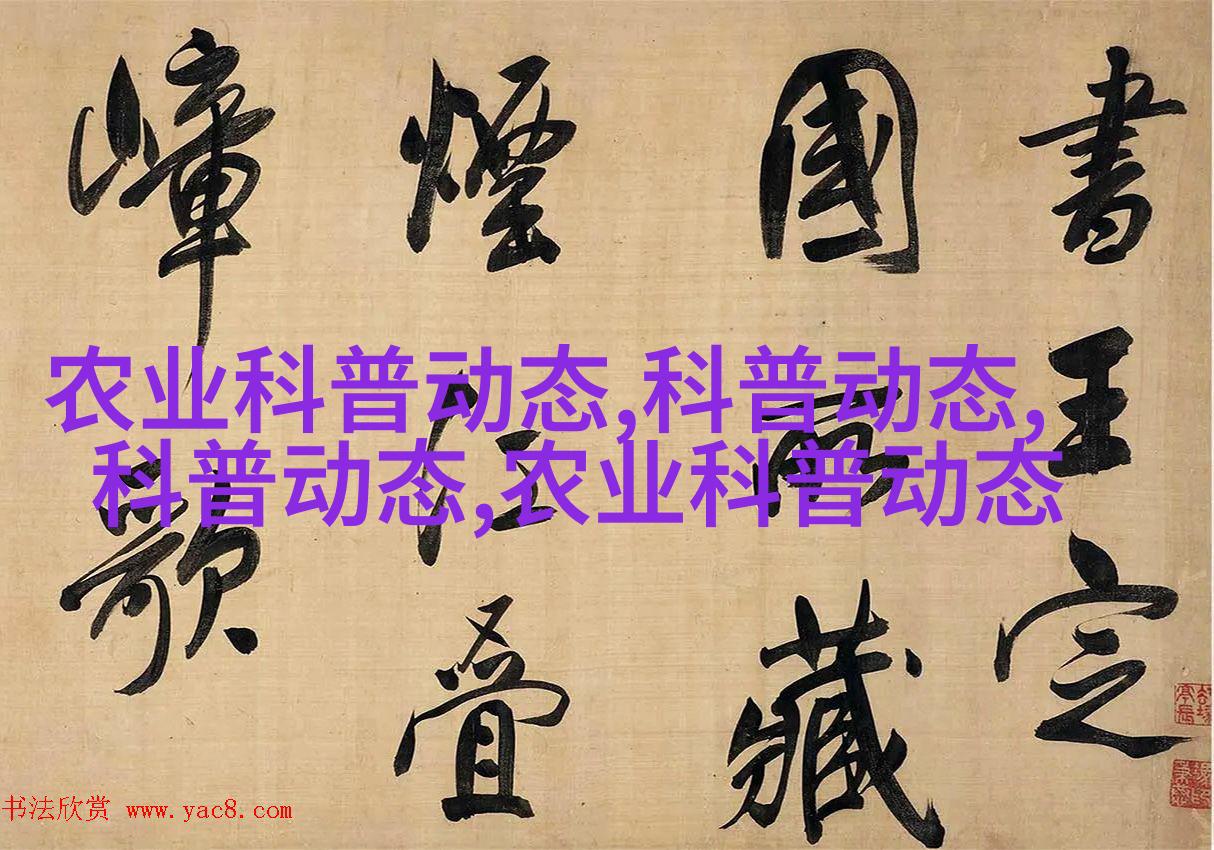 書王定
國所藏
煙江疊
嶂歌
农业科普动态,科普动态,
科普动态,农业科普动态
书法欣赏 www.yac8.com